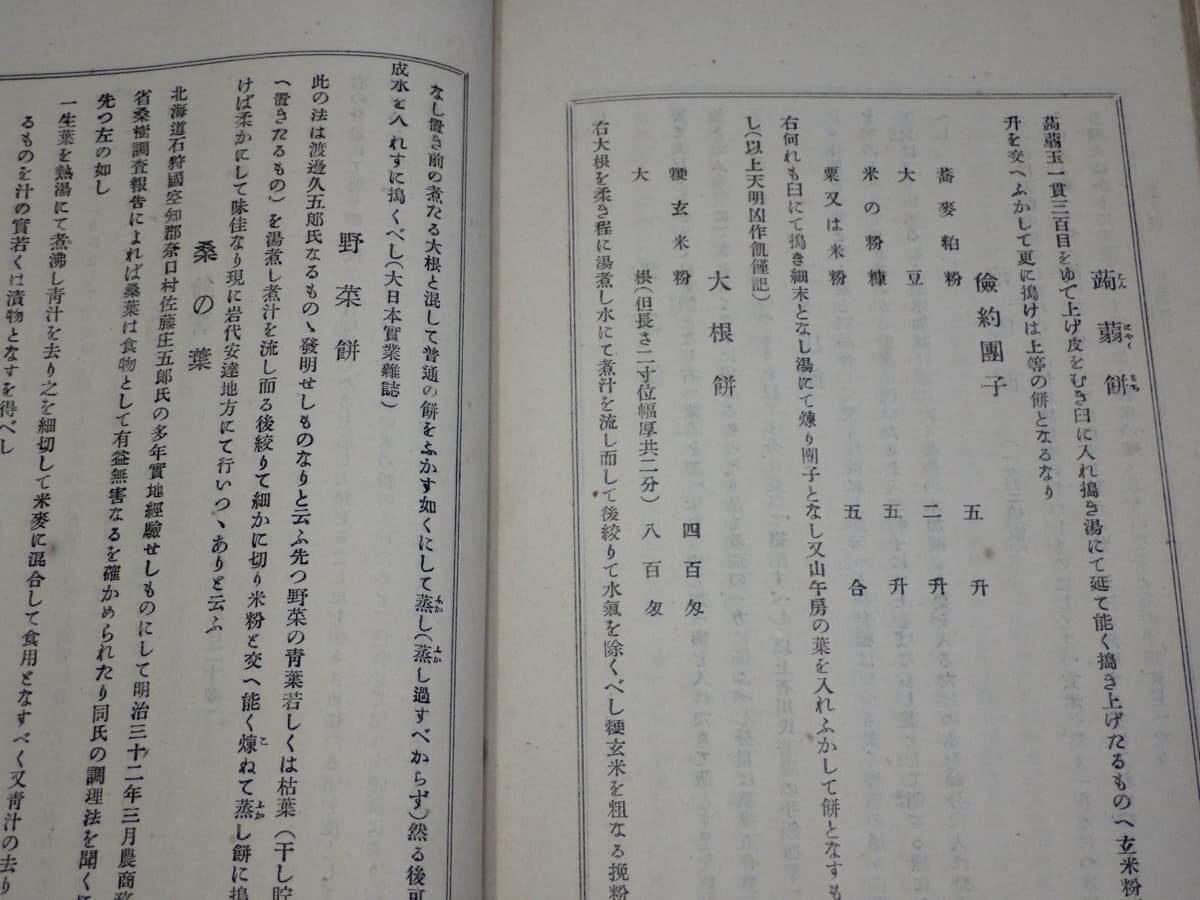 蒟蒻餅
蒟蒻玉一貫三百目をゆて上げ皮をむき臼に入れ搗き湯にて延て能く搗き上げたるものへ玄米粉
升を交へふかして更に搗けは上等の餅となるなり
儉約團子
蕎麥粕粉 五升
大豆 二升
米の粉糠 五升
粟又は米粉 五合
右何れも臼にて搗き細末となし湯にて煉り團子となし又山午房の葉を入れふかして餅となすも
し(以上天明凶作飢僅記)
大根餅
粳玄米粉 四百匁
大根(但長さ二寸位幅厚共二分) 八百匁
右大根を柔き程に湯煮し水にて煮汁を流し而して後絞りて水氣を除くべし粳玄米を粗なる挽粉
なし置き前の煮たる大根と混して普通の餅をふかす如くにして蒸し(蒸し過すべからず)然る後可
成水を入れすに搗くべし(大日本實業雜誌)
野菜餅
此の法は渡邊久五郎氏なるものゝ發明せしものなりと云ふ先つ野菜の青葉若しくは枯葉(干し貯
へ置きたるもの)を湯煮し煮汁を流し而る後絞りて細かに切り米粉と交へ能く煉ねて蒸し餅に搗
けば柔かにして味佳なり現に岩代安達地方にて行いつゝありと云ふ
桑の葉
北海道石狩國空知郡奈口村佐藤庄五郎氏の多年實地經驗せしものにして明治三十二年三月農商務
省桑樹調査報告によれば桑葉は食物として有益無害なるを確かめられたり同氏の調理法を聞くに
先つ左の如し
一生葉を熱湯にて煮沸し青汁を去り之を細切して米麥に混合して食用となすべく又青汁の去り
るものを汁の實若くは漬物となすを得べし